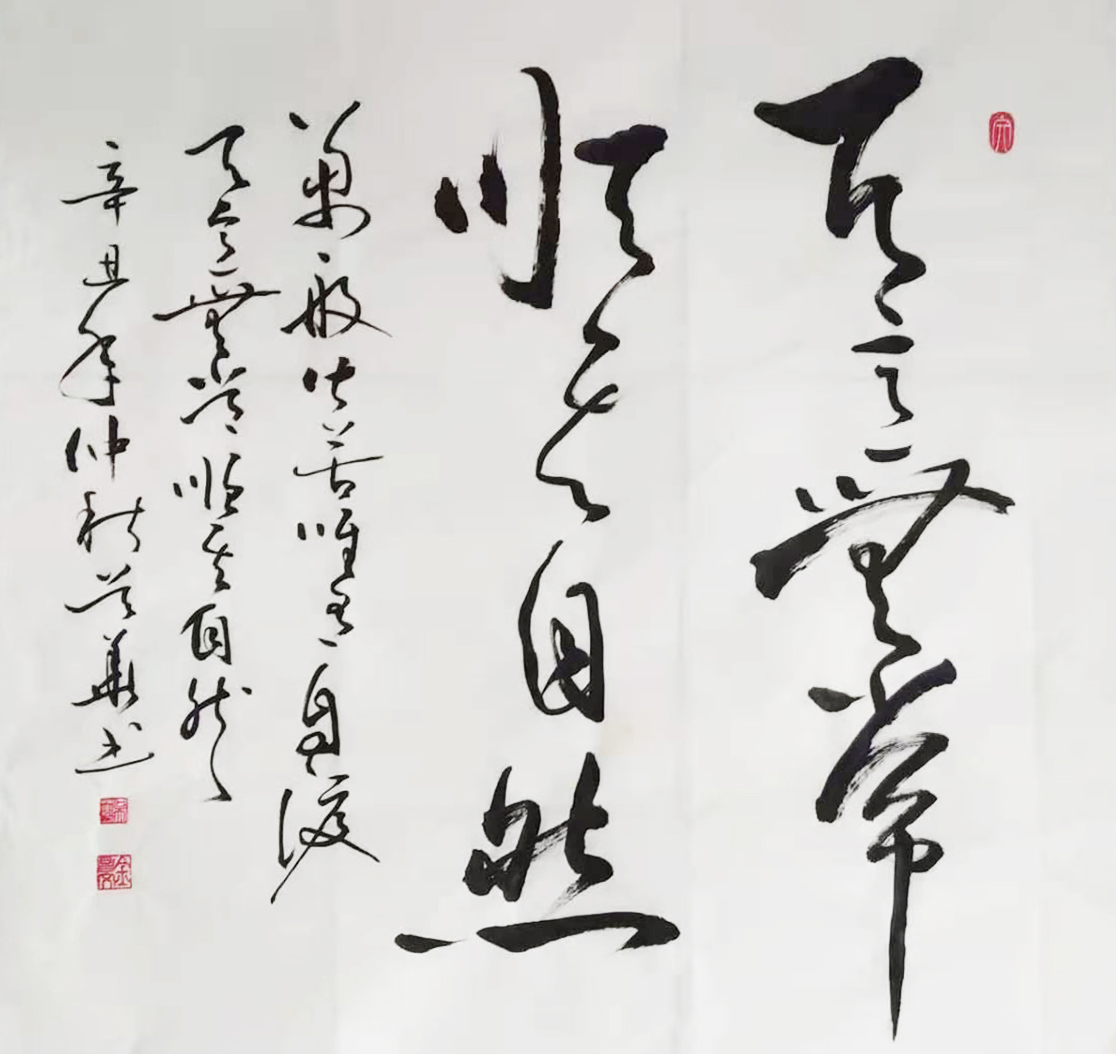 無常
順其自然
萬般皆苦唯有自渡
無常順其自然
辛丑年仲秋華書